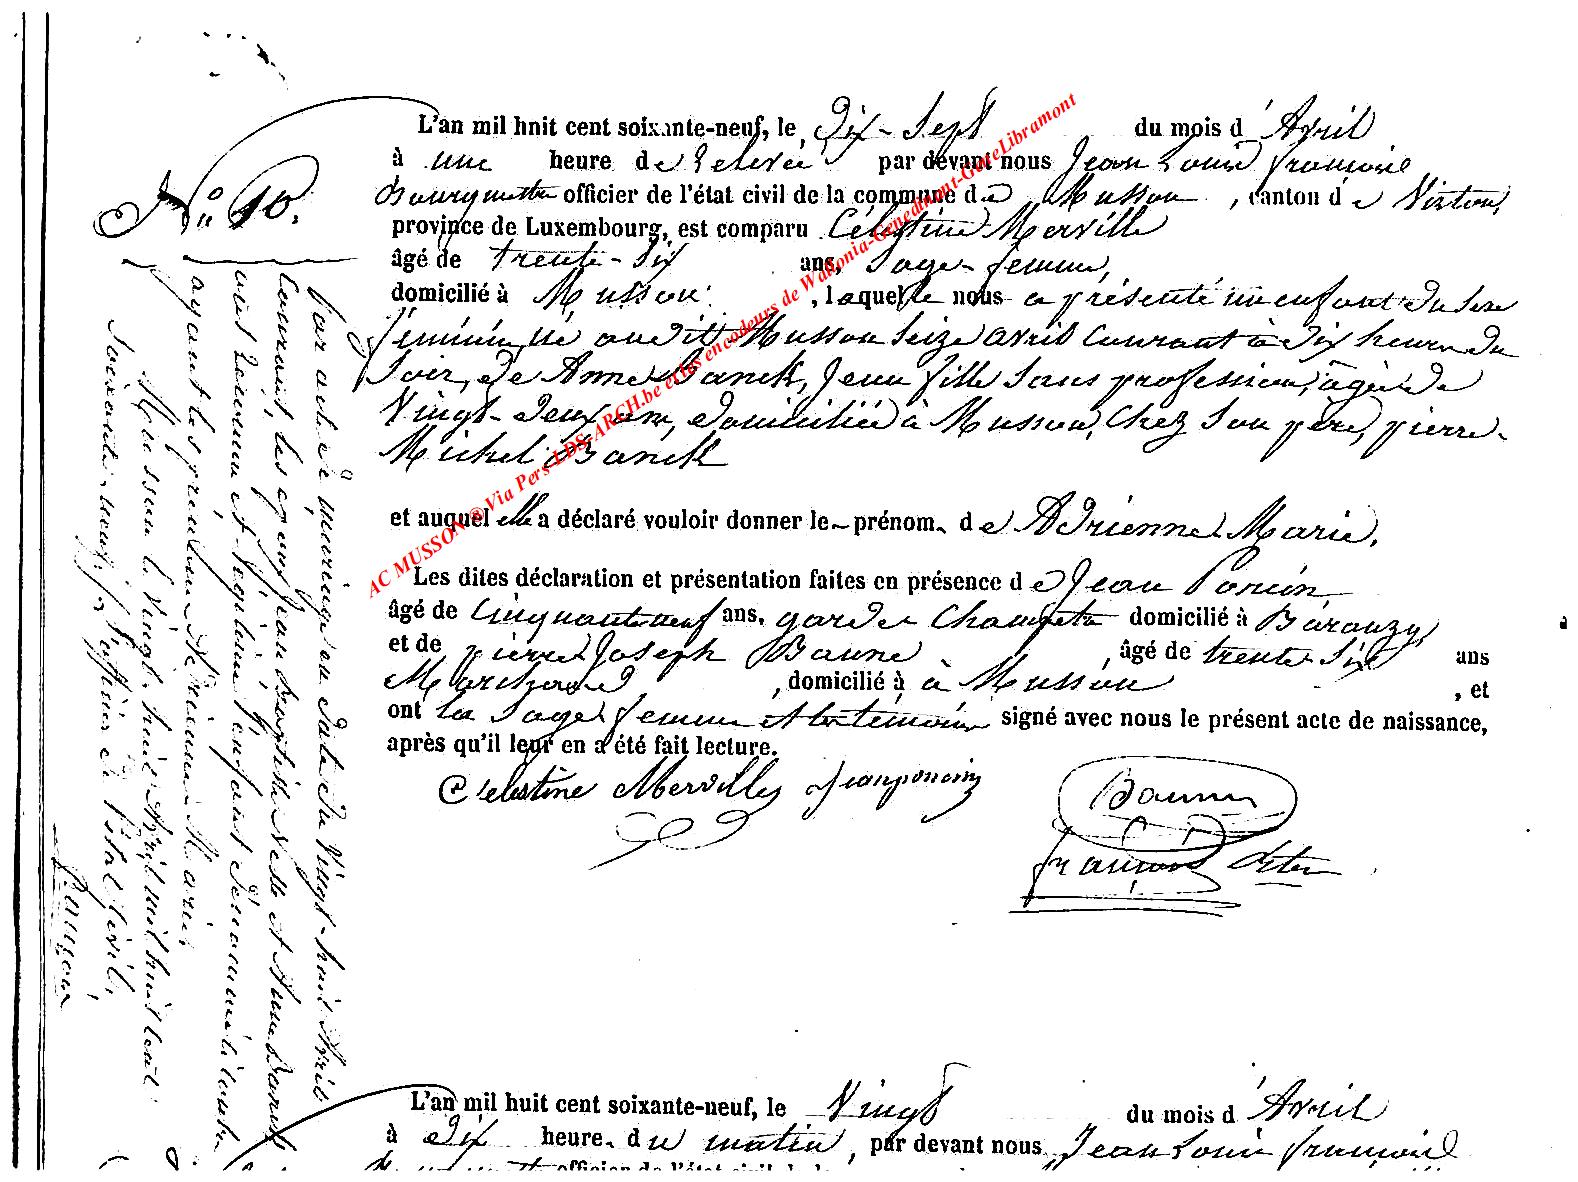 N° 10.
L'an mil huit cent soixante-neuf, le Dix-Sept du mois d'Avril
à une heure de relevée par devant nous Jean Louis françois
Bourguette officier de l'état civil de la commune de Musson, canton de Virton,
province de Luxembourg, est comparu Célestine Merville
âgé de trente-six ans, Sage-femme,
domicilié à Musson, laquelle nous a présenté un enfant du sexe
féminin, né audit Musson Seize avril courant à dix heures du
Soir, de Anne Banck, Jeune fille sans profession, âgée de
Vingt-deux ans, domiciliée à Musson, chez son père, pierre-
Michel Banck
et auquel elle a déclaré vouloir donner le prénom de Adrienne Marie.
Les dites déclaration et présentation faites en présence de Jean Poncin
âgé de Cinquante neuf ans, garde Champêtre domicilié à Baranzy,
et de pierre Joseph Baune, âgé de trente six ans
Marchand, domicilié à à Musson, et
ont la Sage femme et les témoins signé avec nous le présent acte de naissance,
après qu'il leur en a été fait lecture.
Celestine Merville Jean poncin
Baune
françois
Par acte de mariage en date du Vingt-huit Avril
Courant, les époux Jean Baptiste et Anne Banck
ont reconnu et légitimé l'enfant dénommé ci contre
ayant les prénoms Adrienne Marie,
Musson le Vingt-huit Avril mil huit cent
Soixante-neuf, L'officier de l'état Civil,
françois
AC MUSSON ® Via Pers-LDS-ARCH.be et les encodeurs de Wallonia-Genedinant-GeneLibramont
L'an mil huit cent soixante-neuf, le Vingt du mois d'Avril
à Dix heure du matin, par devant nous Jean Louis françois
officier de l'état civil de la